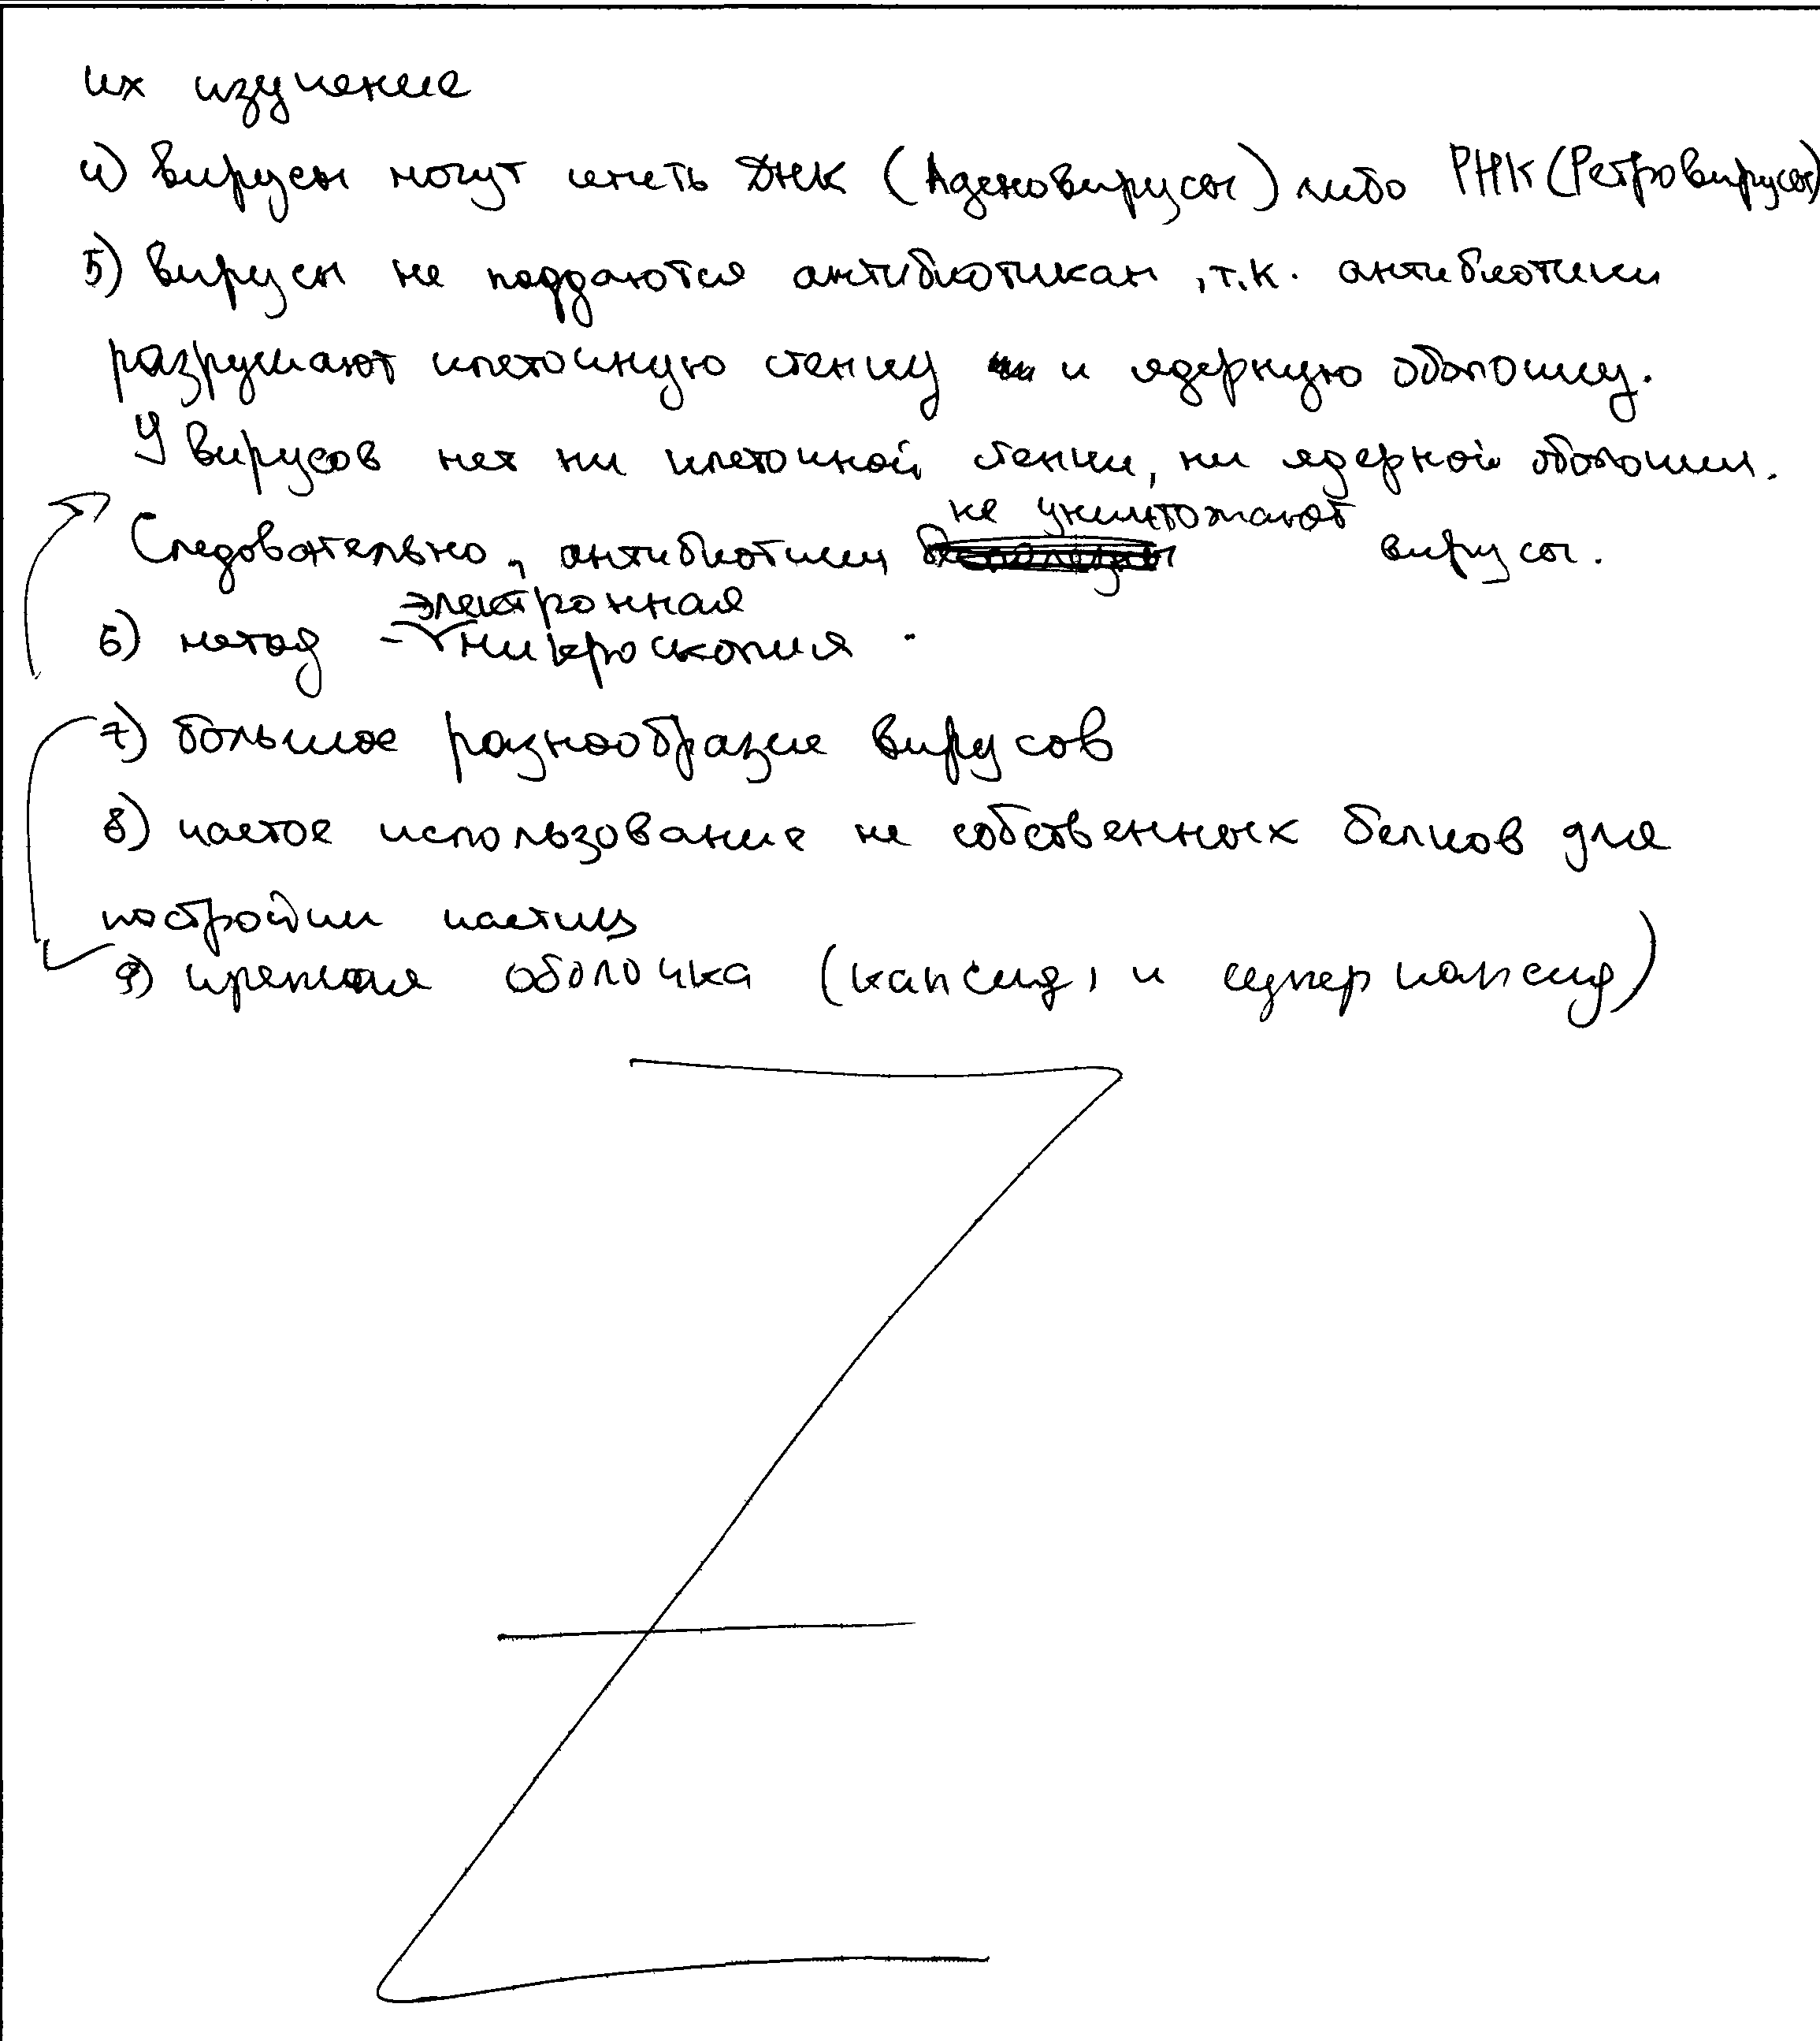 их изучение
4) Вирусы могут иметь ДНК (Аденовирусы) либо РНК (Ретровирусы)
5) Вирусы не поддаются антибиотикам, т.к. антибиотики
разрушают клеточную стенку и ядерную оболочку.
У вирусов нет ни клеточной стенки, ни ядерной оболочки.
не уничтожают
Следовательно, антибиотики вирусы.
электронная
6) метод - микроскопия.
7) большое разнообразие вирусов
8) частое использование не собственных белков для
постройки частиц
9) крепкая оболочка (капсид, и суперкапсид)